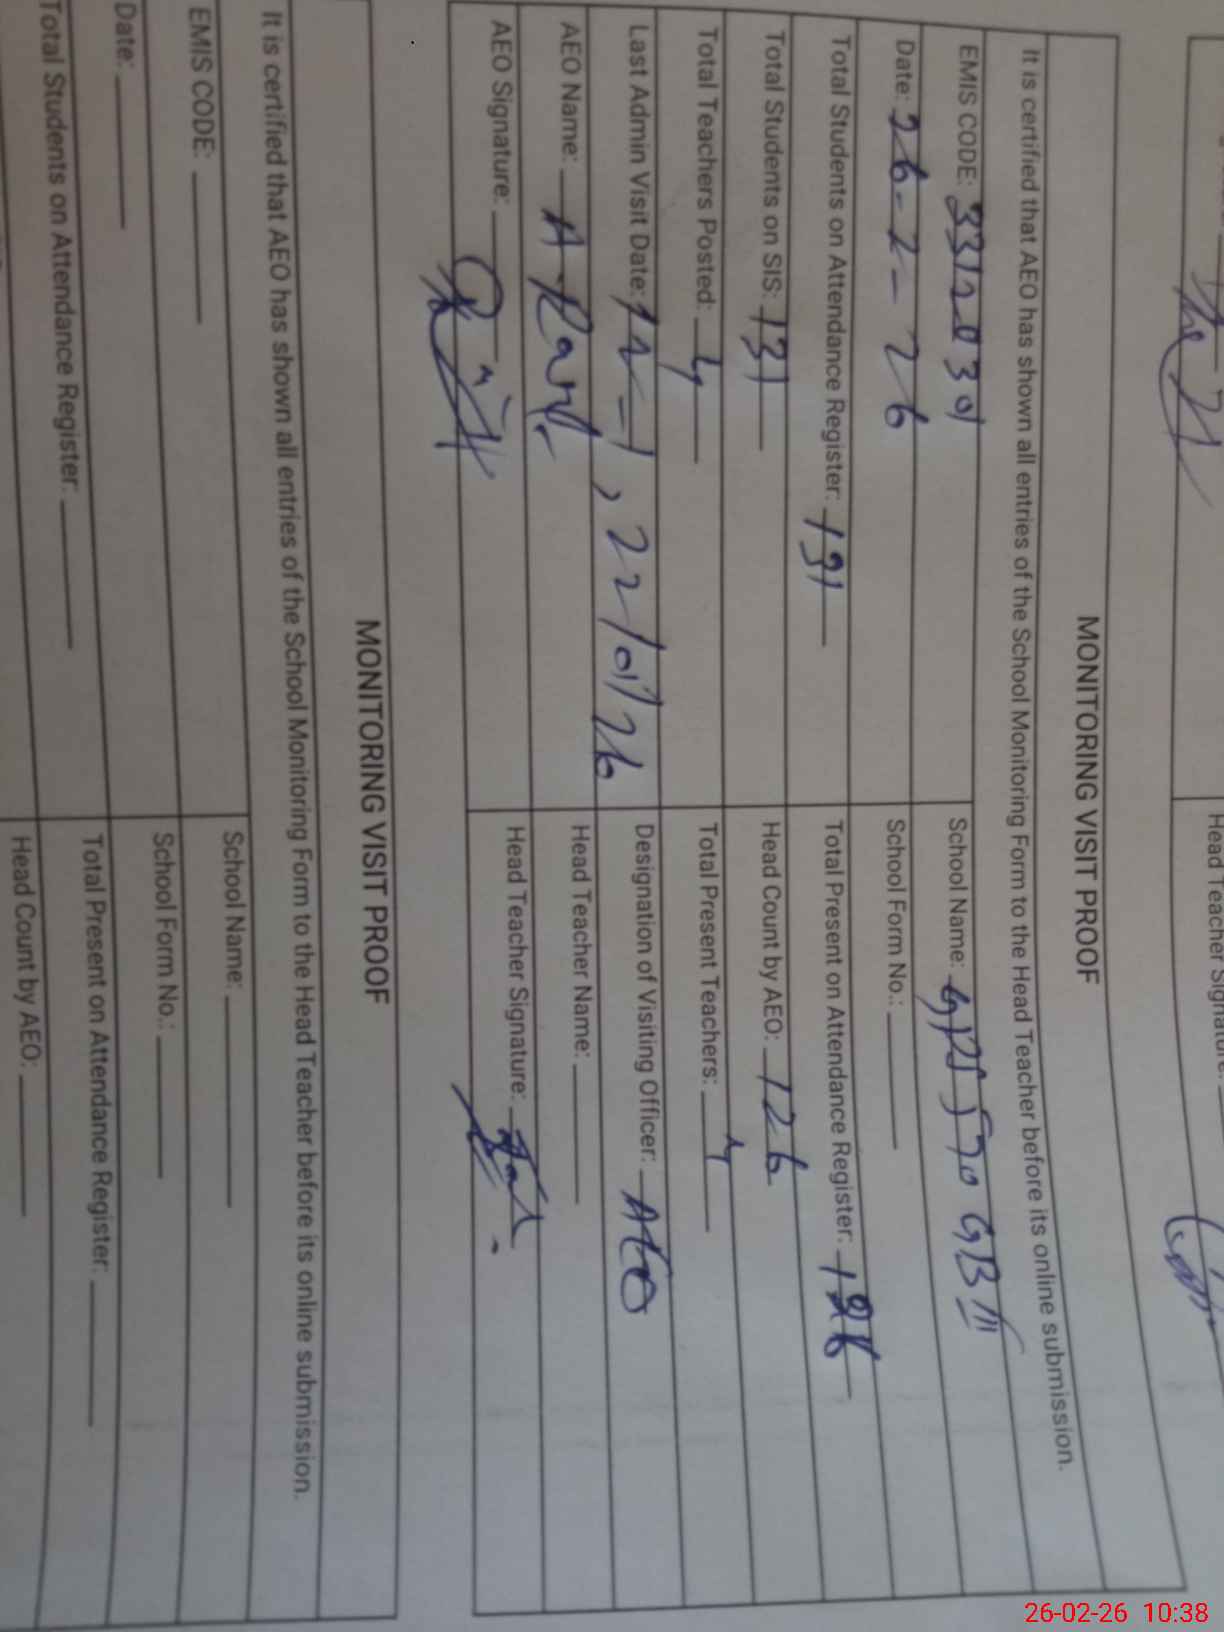 Head Teacher Signature:
MONITORING VISIT PROOF
It is certified that AEO has shown all entries of the School Monitoring Form to the Head Teacher before its online submission.
EMIS CODE: 33120301
School Name: GPS 570 GB
Date: 26-2-26
School Form No.:
Total Students on Attendance Register: 131
Total Present on Attendance Register:
Total Students on SIS: 131
Head Count by AEO: 126
Total Teachers Posted: 4
Total Present Teachers: 4
Last Admin Visit Date: , 22/01/26
Designation of Visiting Officer: AEO
AEO Name: A.
Head Teacher Name:
AEO Signature:
Head Teacher Signature:
MONITORING VISIT PROOF
It is certified that AEO has shown all entries of the School Monitoring Form to the Head Teacher before its online submission.
EMIS CODE:
School Name:
Date:
School Form No.:
Total Students on Attendance Register:
Total Present on Attendance Register:
Head Count by AEO:
26-02-26 10:38